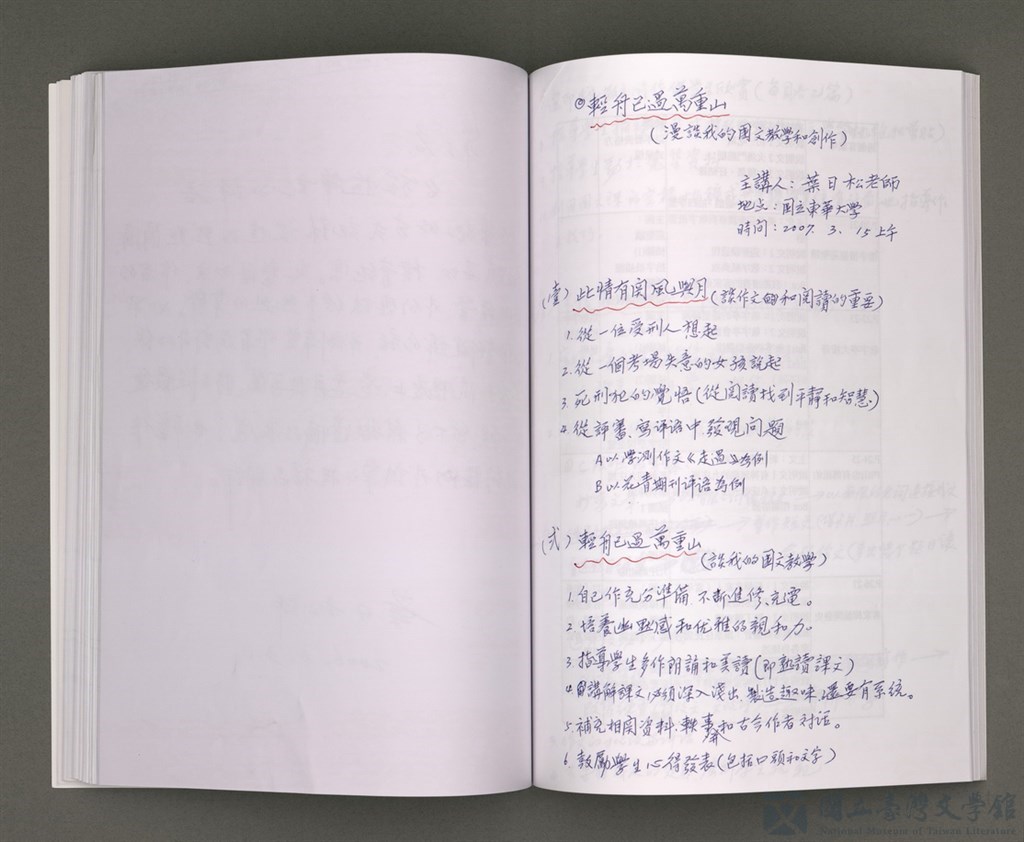 ◎輕舟已過萬重山
(漫談我的国文教學和創作)
主講人:葉日松老師
地点:国立東華大學
時間:2007. 3. 15上午
(壹) 此情有関風與月(談作文和閱讀的重要)
1. 從一位受刑人想起
2. 從一個考場失意的女孩說起
3. 死刑犯的覺悟(從閱讀找到平靜和智慧)
4. 從評審、寫评语中發現问題
A以學測作文《走過》為例
B以花青期刊评语為例
(弍) 輕舟已過萬重山
(談我的国文教學)
1. 自己作充分準備,不斷進修、充電。
2. 培養幽默感和优雅的親和力。
3. 指導學生多作朗誦和美讀(即熟讀課文)
4. 講解課文,必須深入淺出,製造趣味,還要有系统。
5. 補充相関資料、軼事和古今作者对话。
6. 鼓勵學生心得發表(包括口頭和文字)
國立臺灣文學館
National Museum of Taiwan Literature